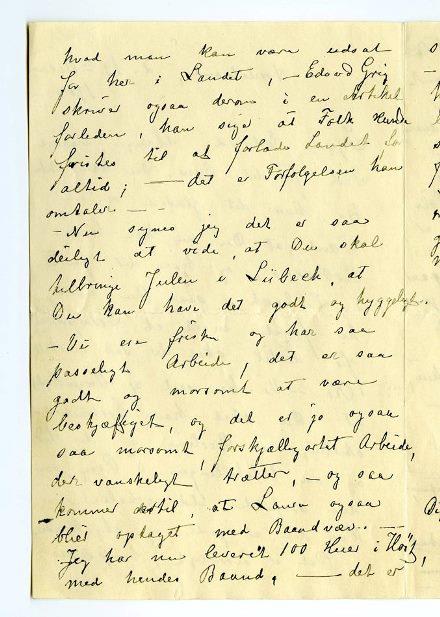 hvad man kan være udsat
for her i Landet, — Edvard Grig
skriver ogsaa derom i en Artikel
forleden, han siger at Folk kunde
fristes til at forlade Landet for
altid; — det er Forfølgelsen han
omtaler — —
— Nu synes jeg det er saa
deiligt at vide, at Du skal
tilbringe Julen i Lübeck, at
Du kan have det godt og hyggeligt.
— Vi ere friske og har saa
passeligt Arbeide, det er saa
godt og morsomt at være
beskjæftiget, og det er jo ogsaa
saa morsomt, forskjelligartet Arbeide,
der vanskeligt trætter, — og saa
kommer dertil, at Laura ogsaa
blier optaget med Baandvæv. —
Jeg har nu leveret 100 Huer i Høst,
med hendes Baand, — det er